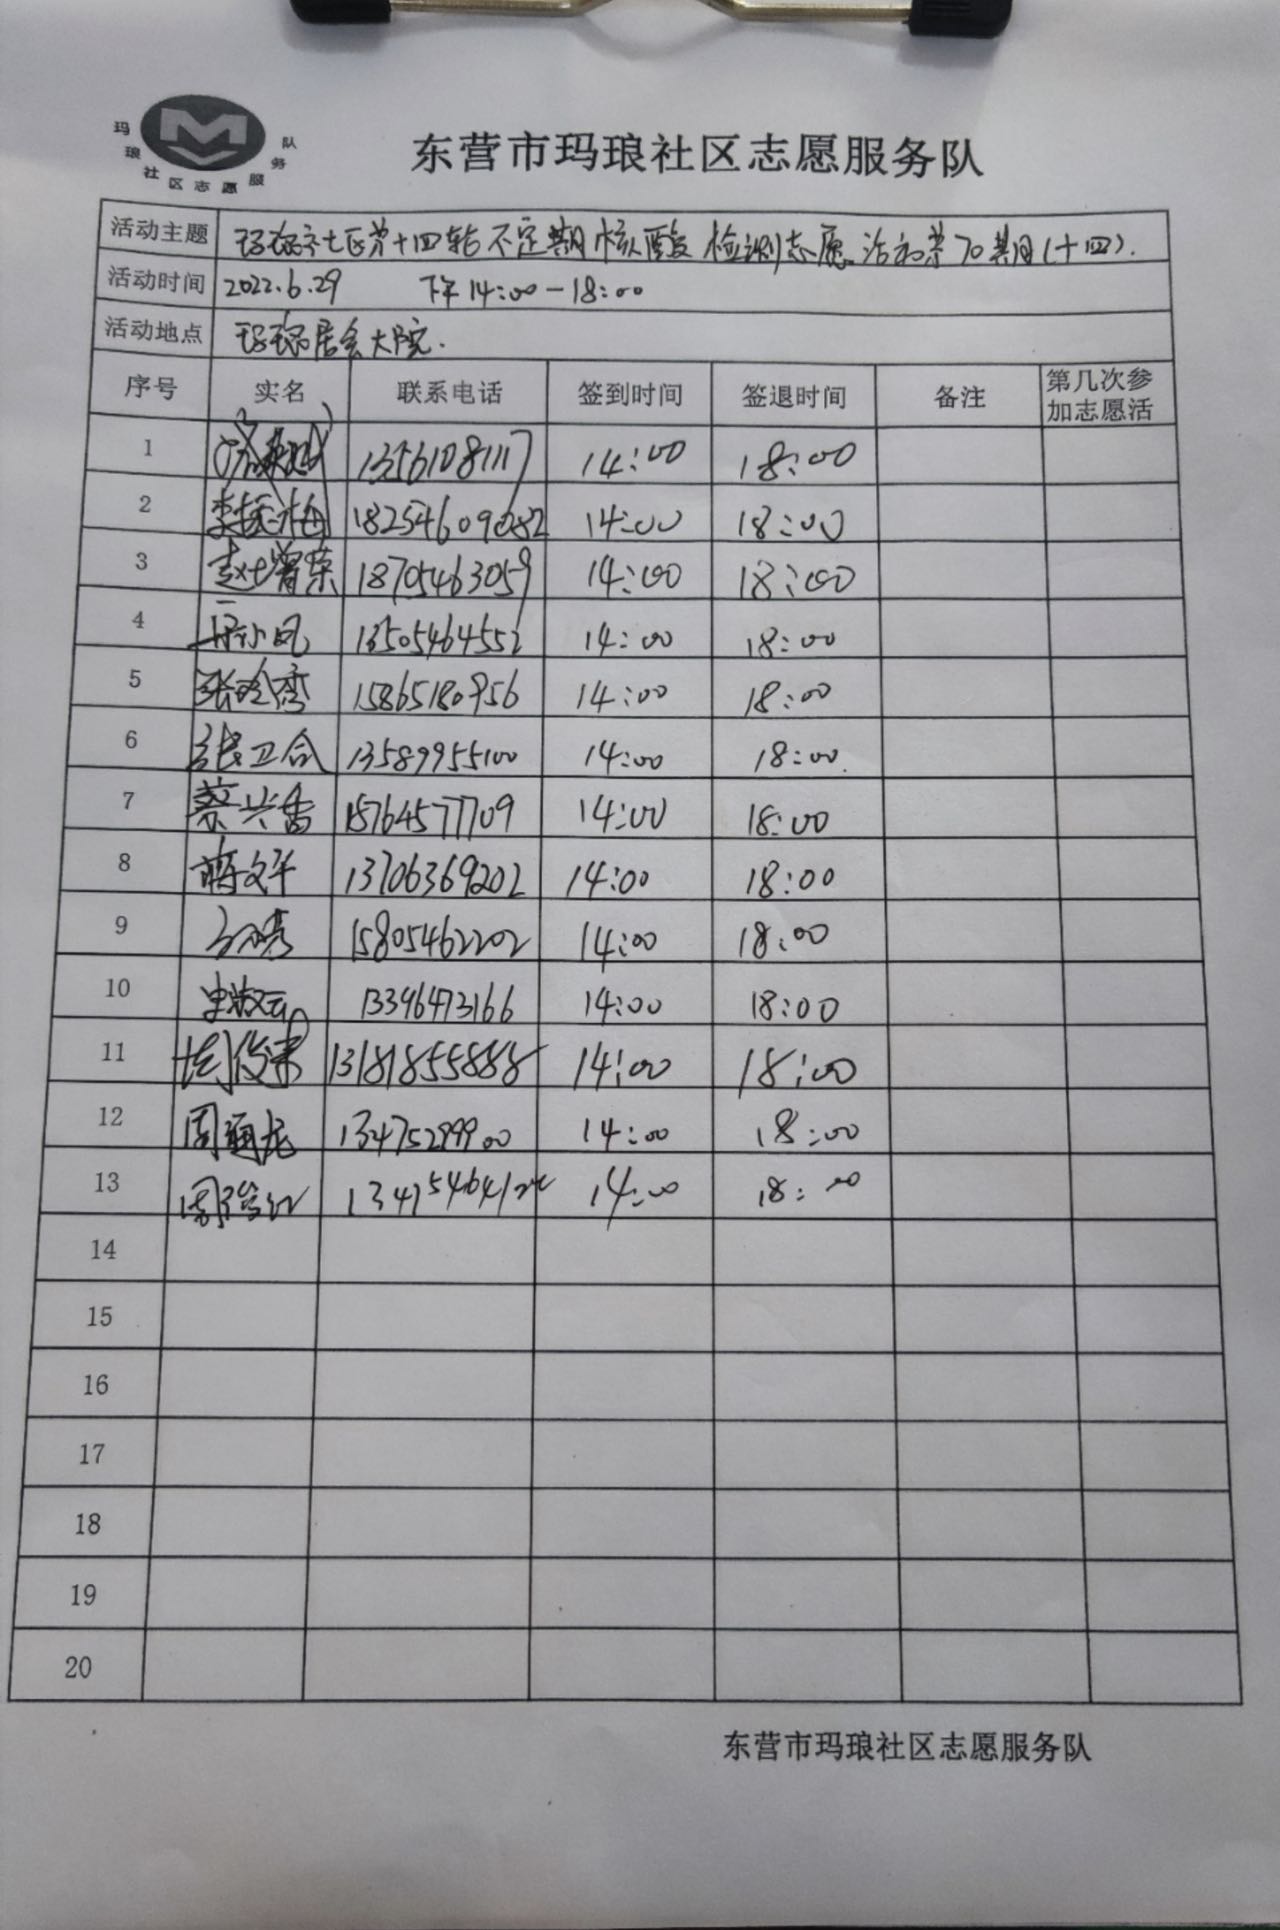 玛琅社区志愿服务队
东营市玛琅社区志愿服务队
活动主题 玛琅社区第十四轮不定期核酸检测志愿活动第70期(十四).
活动时间 2022.6.29 下午14:00-18:00
活动地点 玛琅居会大院.
序号 实名 联系电话 签到时间 签退时间 备注 第几次参
加志愿活
1 13561081117 14:00 18:00
2 李振梅 18254609082 14:00 18:00
3 赵增荣 18705463059 14:00 18:00
4 13505464552 14:00 18:00
5 15865180956 14:00 18:00
6 张卫合 13589955100 14:00 18:00.
7 蔡兴雷 15764577709 14:00 18:00
8 蒋文平 13706369202 14:00 18:00
9 15805462202 14:00 18:00
10 史淑云 13396473166 14:00 18:00
11 13181855888 14:00 18:00
12 周通龙 13475299900 14:00 18:00
13 14:00 18:00
14
15
16
17
18
19
20
东营市玛琅社区志愿服务队